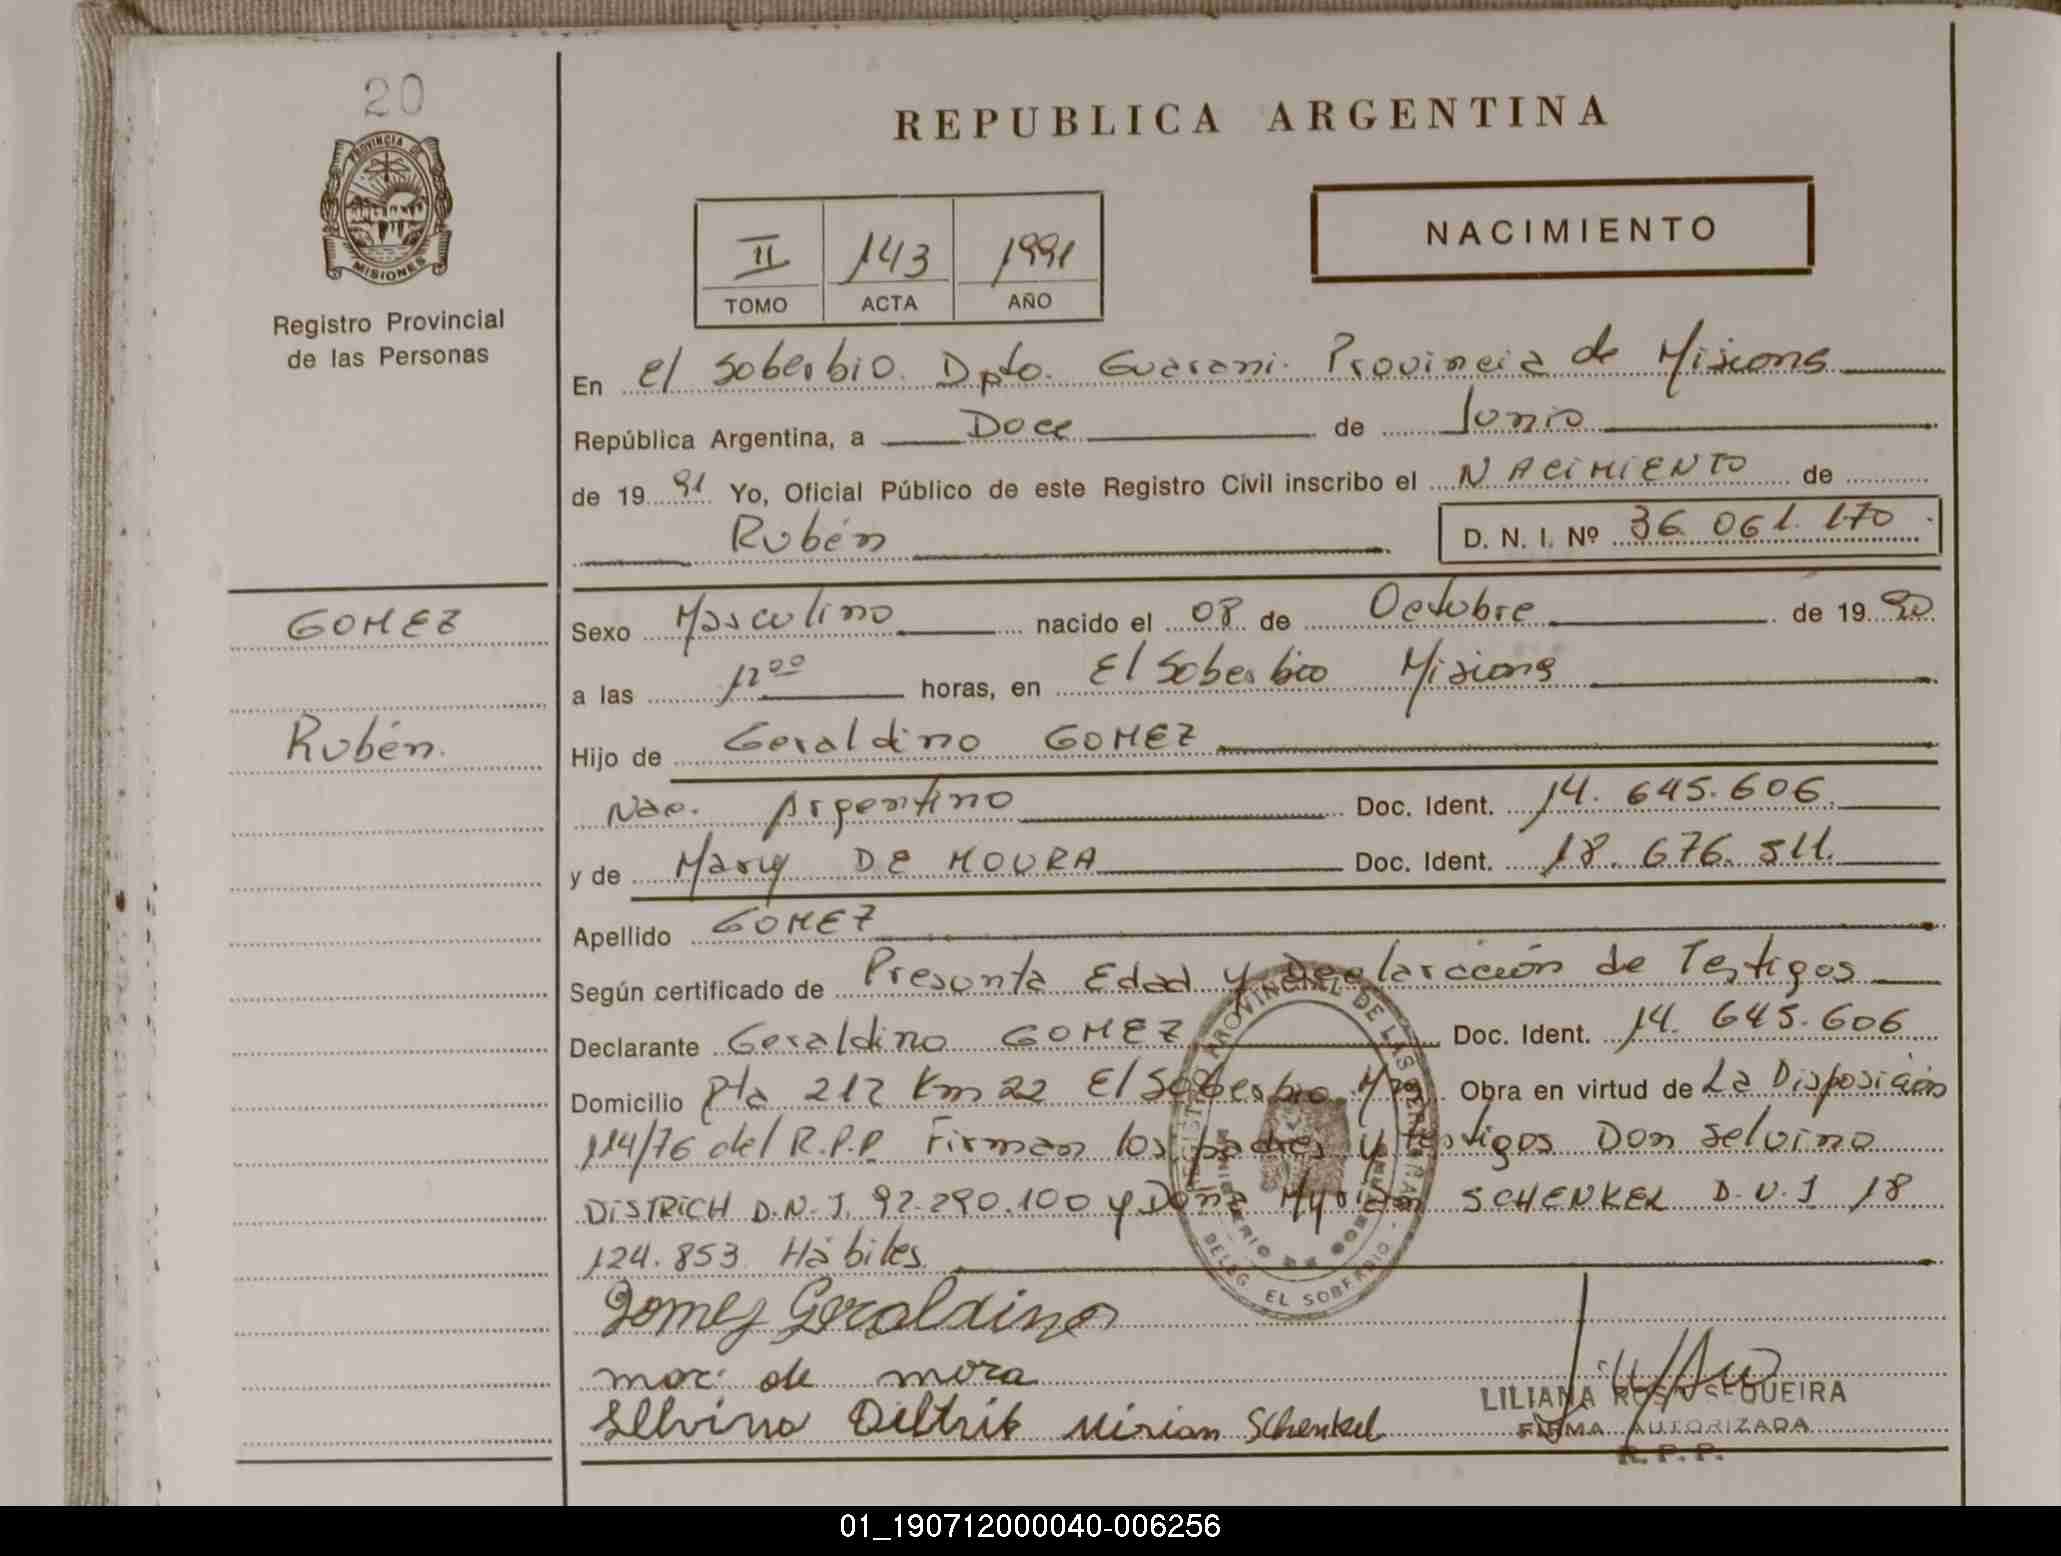 20
PROVINCIA DE
MISIONES
Registro Provincial
de las Personas
REPUBLICA ARGENTINA
II 143 1991
TOMO ACTA AÑO
NACIMIENTO
En El Soberbio. Dpto. Guarani. Provincia de Misiones
República Argentina, a Doce de Junio
de 19 91 Yo, Oficial Público de este Registro Civil inscribo el NACIMIENTO de
Rubén
D. N. I. Nº 36.061.170
GOMEZ
Rubén.
Sexo Masculino nacido el 08 de Octubre de 19 90
a las horas, en El Soberbio Misiones
Hijo de Geraldino GOMEZ
Nac. Argentino Doc. Ident. 14.645.606
y de Mary DE MOURA Doc. Ident. 18.676.511.
Apellido GOMEZ
Según certificado de Presunta Edad y Declaración de Testigos
Declarante Geraldino GOMEZ Doc. Ident. 14.645.606
Domicilio Pta 212 Km 22 El Soberbio. Mnes Obra en virtud de La Disposición
114/76 del R.P.P. Firman los padres y testigos Don Selvino
DISTRICH D.N.I. 92.290.100 y Doña Myrian SCHENKEL D.U.I 18
124.853. Hábiles
REGISTRO PROVINCIAL DE LAS PERSONAS
MINISTERIO DE GOBIERNO
DELEG. EL SOBERBIO
Gomez Geraldino
mari de mora
Selvino Diltrik Mirian Schenkel
LILIANA ROSA SEQUEIRA
FIRMA AUTORIZADA
R.P.P.
01_190712000040-006256